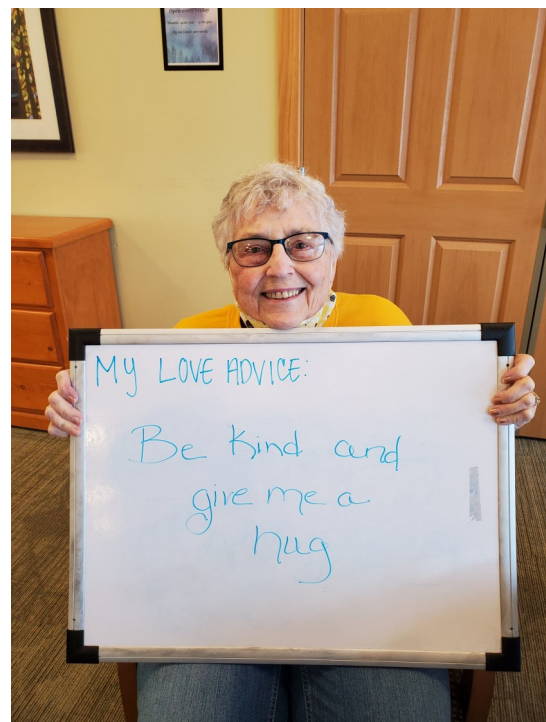 MY LOVE ADVICE:
Be Kind and
give me a
hug